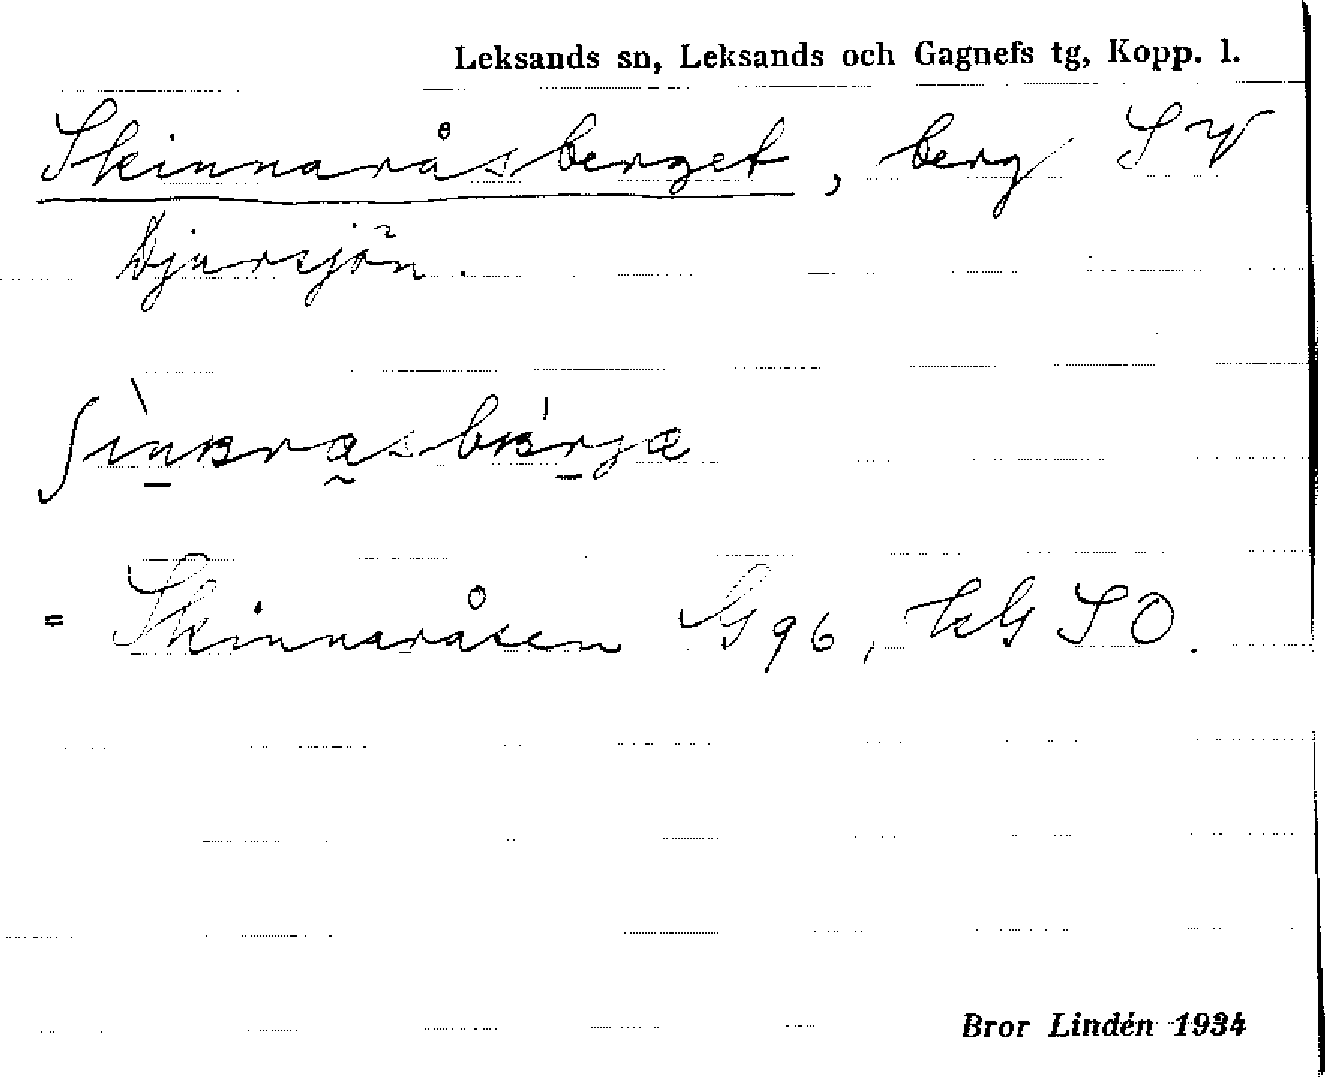 Leksands sn, Leksands och Gagnefs tg, Kopp. l.
Skinnaråsberget, berg SV
Djursjön.
= Skinnaråsen G 96, SO.
Bror Lindén 1934